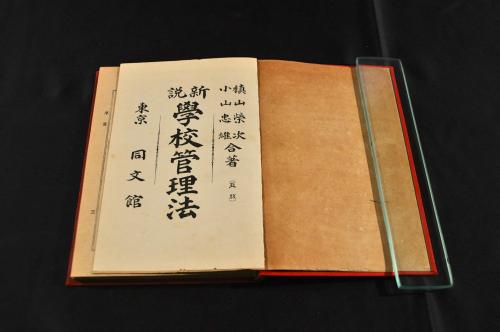 槙山榮次
小山忠雄
合著
新説
學校管理法
東京 同文館